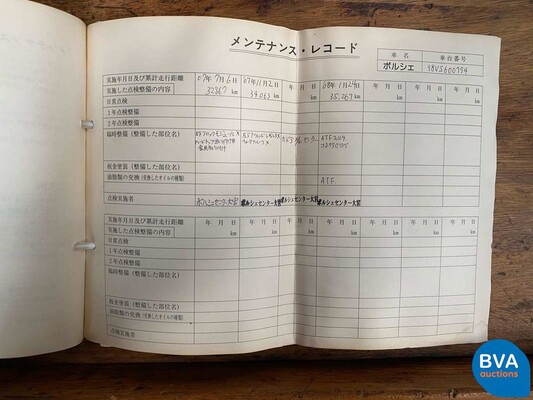 メンテナンス・レコード
車名 車台番号
ポルシェ
実施年月日及び累計走行距離 07年7月6日 07年11月2日 年 月 日 08年1月24日 年 月 日 年 月 日 年 月 日
実施した点検整備の内容 32867km 34,063km km 35,267km km km km
日常点検
1年点検整備
2年点検整備
臨時整備(整備した部位名)
板金塗装(整備した部位名)
油脂類の交換(交換したオイルの種類) ATF
点検実施者 ポルシェセンター大宮 ポルシェセンター大宮 ポルシェセンター大宮 ポルシェセンター大宮
実施年月日及び累計走行距離 年 月 日 年 月 日 年 月 日 年 月 日 年 月 日 年 月 日 年 月 日
実施した点検整備の内容 km km km km km km km
日常点検
1年点検整備
2年点検整備
臨時整備(整備した部位名)
板金塗装(整備した部位名)
油脂類の交換(交換したオイルの種類)
点検実施者
BVA
auctions